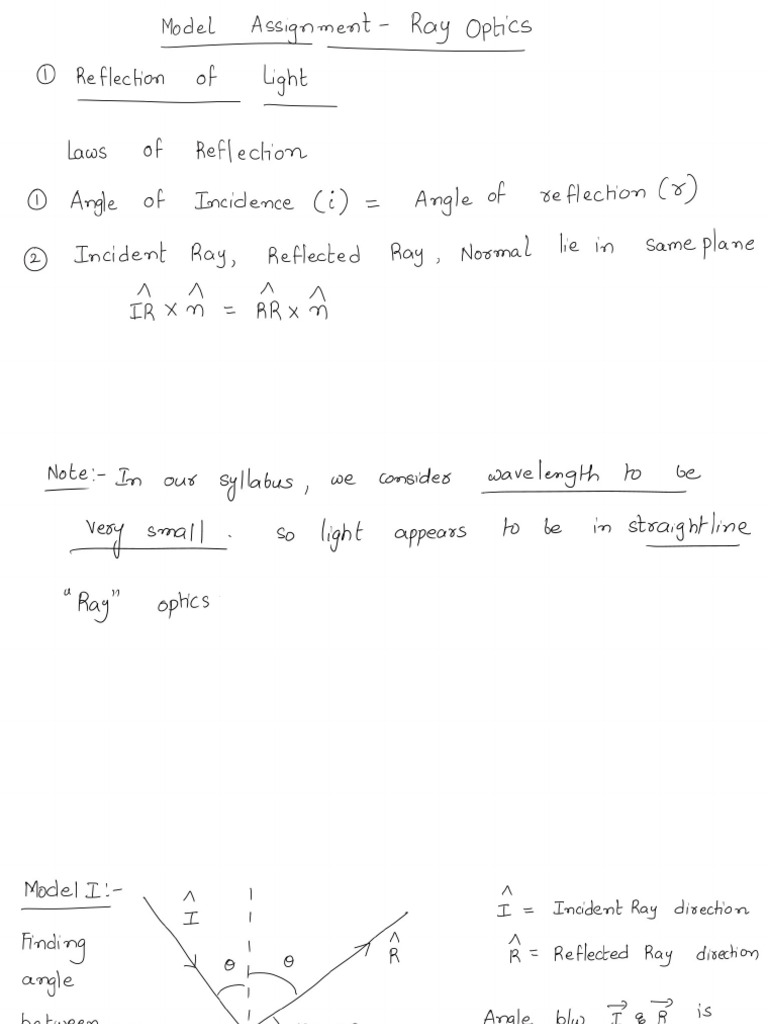 Model Assignment - Ray Optics
① Reflection of Light
Laws of Reflection
① Angle of Incidence (i) = Angle of reflection (r)
② Incident Ray, Reflected Ray, Normal lie in same plane
ÎR × n̂ = R̂R × n̂
Note:- In our syllabus, we consider wavelength to be
very small. so light appears to be in straightline
"Ray" optics
Model I:-
Finding
angle
between
Î
θ θ
R̂
Î = Incident Ray direction
R̂ = Reflected Ray direction
Angle b/w I⃗ & R⃗ is